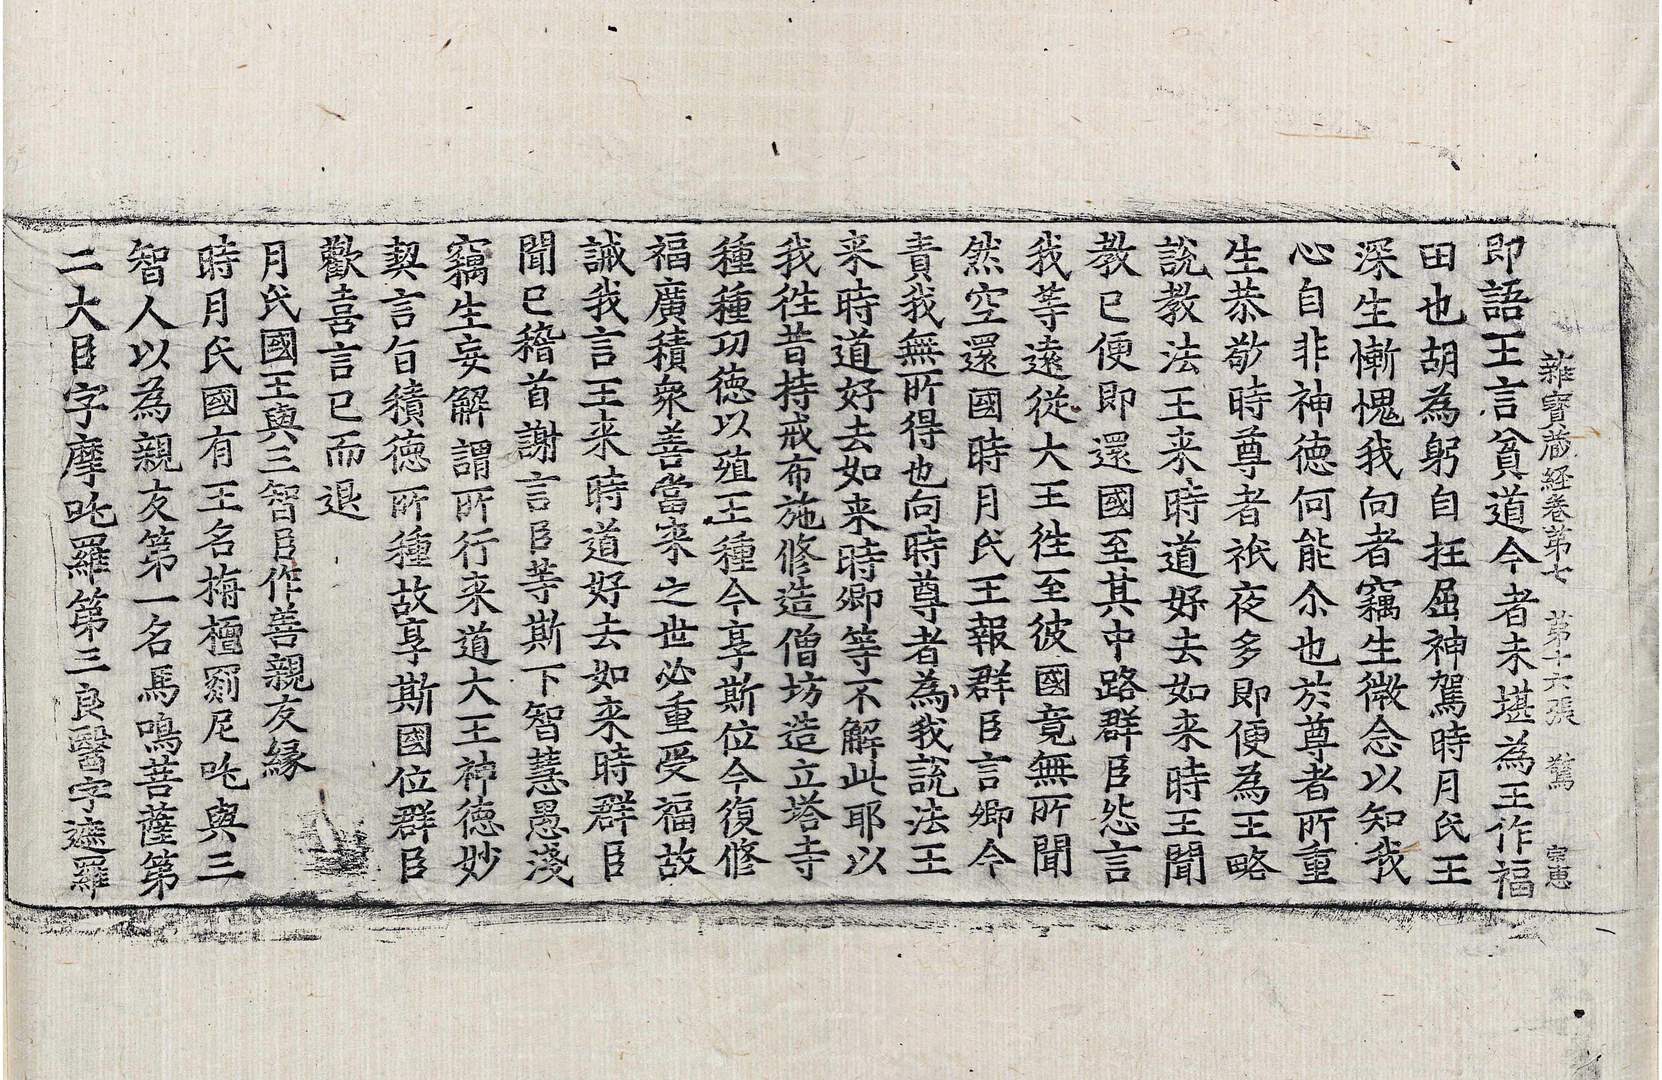 雜寶蔵経卷第七 第十六張 驚 宗恵
即語王言貧道今者未堪為王作福
田也胡為躬自抂屈神駕時月氏王
深生慚愧我向者竊生微念以知我
心自非神德何能尒也於尊者所重
生恭敬時尊者祇夜多即便為王略
說教法王来時道好去如来時王聞
教已便即還國至其中路群臣怨言
我等遠從大王徃至彼國竟無所聞
然空還國時月氏王報群臣言卿今
責我無所得也向時尊者為我説法王
来時道好去如来時卿等不解此耶以
我徃昔持戒布施修造僧坊造立塔寺
種種功德以殖王種今享斯位今復修
福廣積衆善當来之世必重受福故
誡我言王来時道好去如来時群臣
聞已稽首謝言臣等斯下智慧愚淺
竊生妄解謂所行来道大王神德妙
契言旨積德所種故享斯國位群臣
歡喜言已而退
月氏國王與三智臣作善親友緣
時月氏國有王名栴檀罽尼吒與三
智人以為親友第一名馬鳴菩薩第
二大臣字摩吒羅第三良醫字遮羅